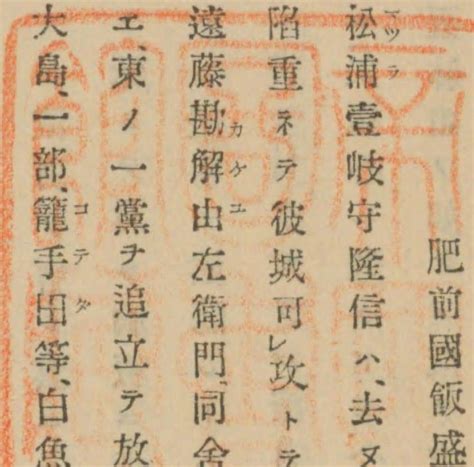 肥前國飯盛
松浦壹岐守隆信ハ、去ヌ
陷重ネテ彼城可レ攻トテ
遠藤勘解由左衛門、同舍
エ、東ノ一黨ヲ追立テ放
大島、一部、籠手田等、白魚